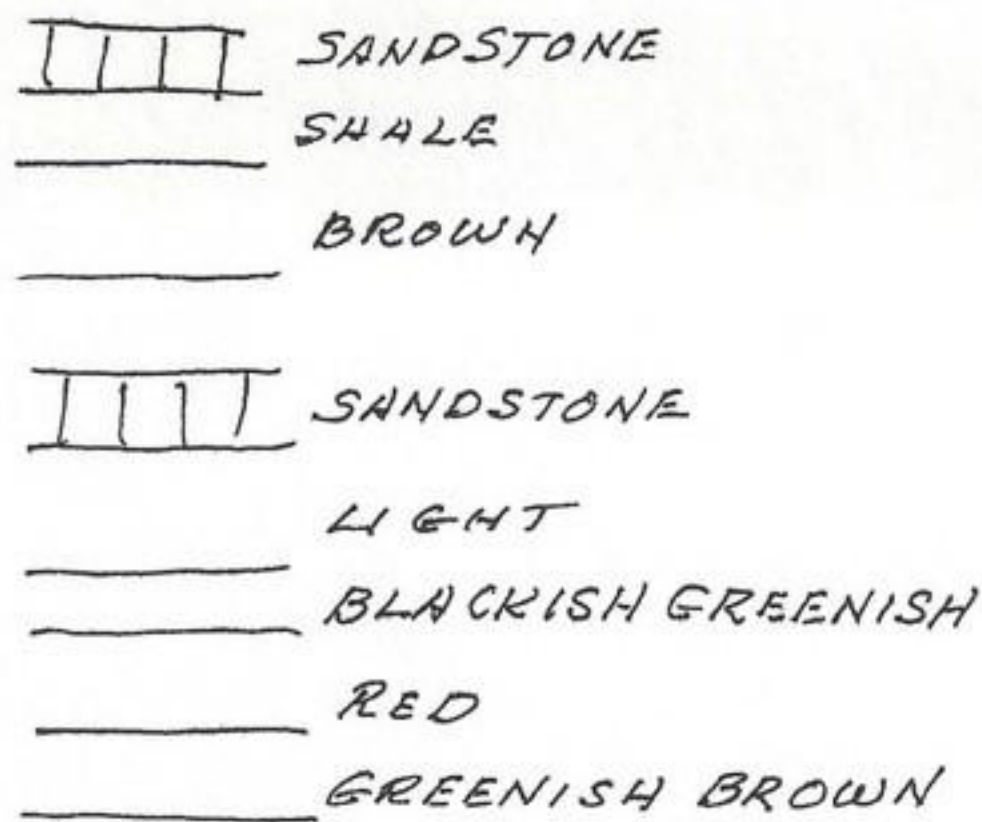 SANDSTONE
SHALE
BROWN
SANDSTONE
LIGHT
BLACKISH GREENISH
RED
GREENISH BROWN